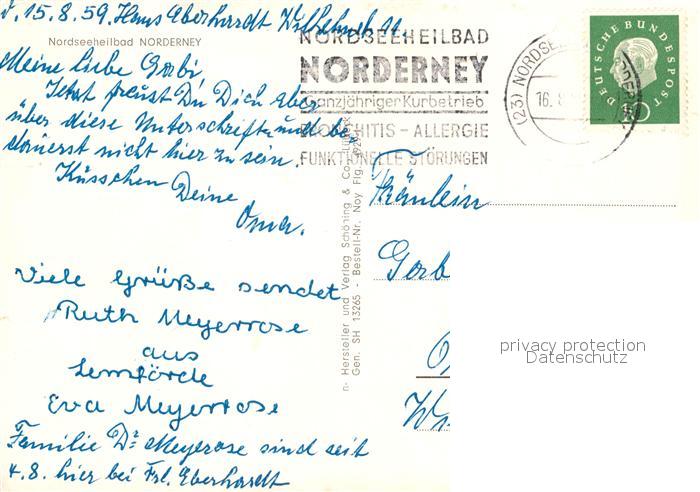 d. 15.8.59. Hans Eberhardt Wilhelmstr. 11.
Nordseeheilbad NORDERNEY
Meine liebe Gabi,
Jetzt freust Du Dich über
über diese Unterschrift und be-
dauerst nicht hier zu sein.
Küsschen Deine
Oma.
Viele Grüße sendet
Ruth Meyerrose
aus
Lemförde
Eva Meyerrose
Familie Dr. Meyerose sind seit
4.8. hier bei Frl. Eberhardt
n- Hersteller und Verlag Schöning & Co., Lübeck
Gen. SH 13265 - Bestell-Nr. Noy Flg. 929
NORDSEEHEILBAD
NORDERNEY
ganzjähriger Kurbetrieb
FUNKTIONELLE STÖRUNGEN
- ALLERGIE
(23) NORDSEE
16.
DEUTSCHE BUNDESPOST
10
Fräulein
Gab
privacy protection
Datenschutz